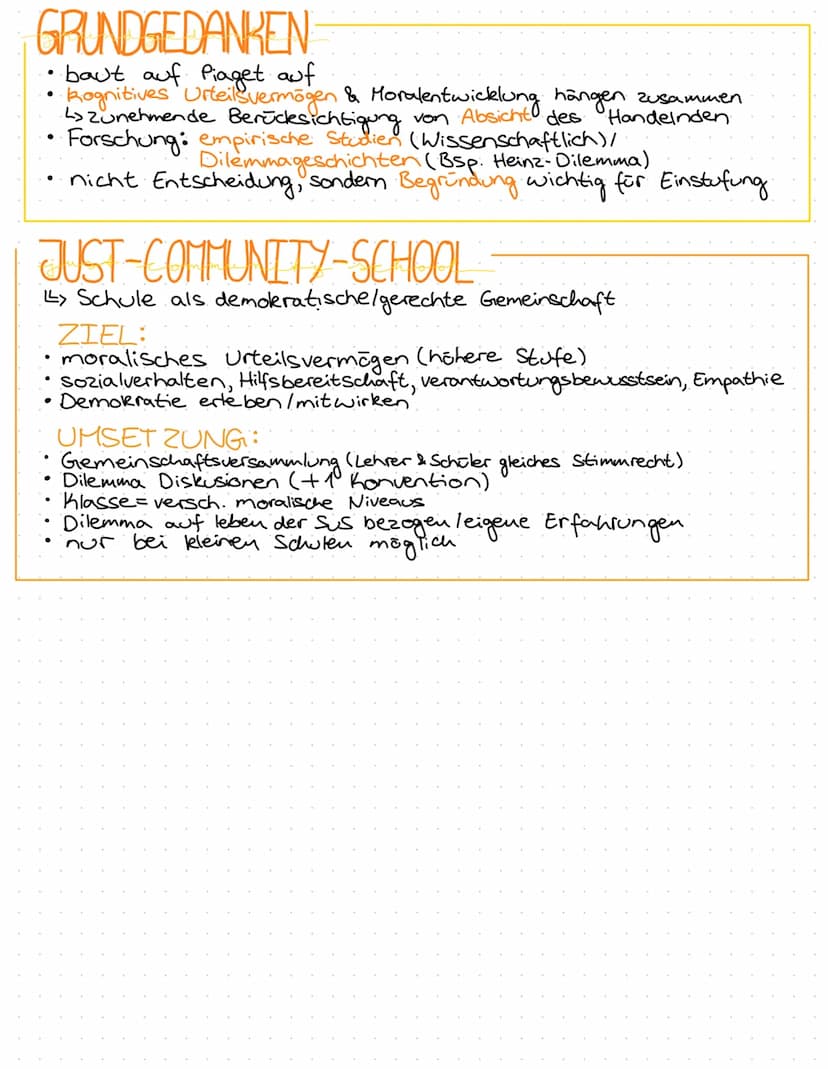 GRUNDGEDANKEN
• baut auf Piaget auf
• kognitives Urteilsvermögen & Moralentwicklung hängen zusammen
↳ zunehmende Berücksichtigung von Absicht des Handelnden
• Forschung: empirische Studien (Wissenschaftlich)/
Dilemmageschichten (Bsp. Heinz-Dilemma)
• nicht Entscheidung, sondern Begründung wichtig für Einstufung
JUST-COMMUNITY-SCHOOL
↳ Schule als demokratische/gerechte Gemeinschaft
ZIEL:
• moralisches Urteilsvermögen (höhere Stufe)
• sozialverhalten, Hilfsbereitschaft, verantwortungsbewusstsein, Empathie
• Demokratie erleben/mitwirken
UMSETZUNG:
• Gemeinschaftsversammlung (Lehrer & Schüler gleiches Stimmrecht)
• Dilemma Diskusionen (+1 Konvention)
• Klasse = versch. moralische Niveaus
• Dilemma auf leben der SuS bezogen/eigene Erfahrungen
• nur bei kleinen Schulen möglich